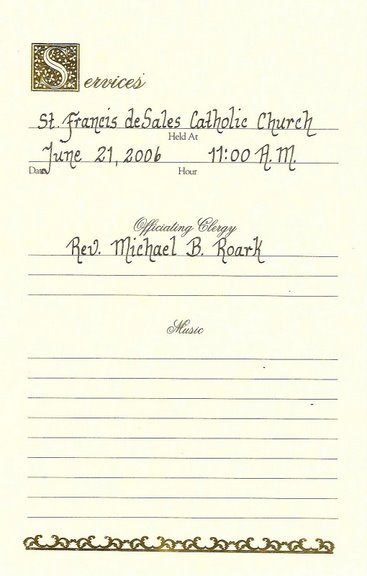 Services
St. Francis deSales Catholic Church
Held At
June 21, 2006 11:00 A.M.
Date Hour
Officiating Clergy
Rev. Michael B. Roark
Music